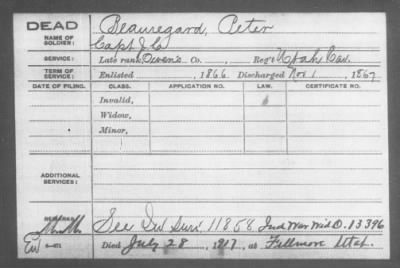 DEAD
NAME OF SOLDIER: Beauregard, Peter
Capt J. Co
SERVICE: Late rank, Owen's Co., Reg't Utah Cav.
TERM OF SERVICE: Enlisted , 1866 Discharged Nov 1 , 1867
DATE OF FILING. CLASS. APPLICATION NO. LAW. CERTIFICATE NO.
Invalid,
Widow,
Minor,
ADDITIONAL SERVICES:
REMARKS: See Ind Surv 11858 Ind War Mis D. 13396
Died July 28, 1917, at Fillmore Utah.